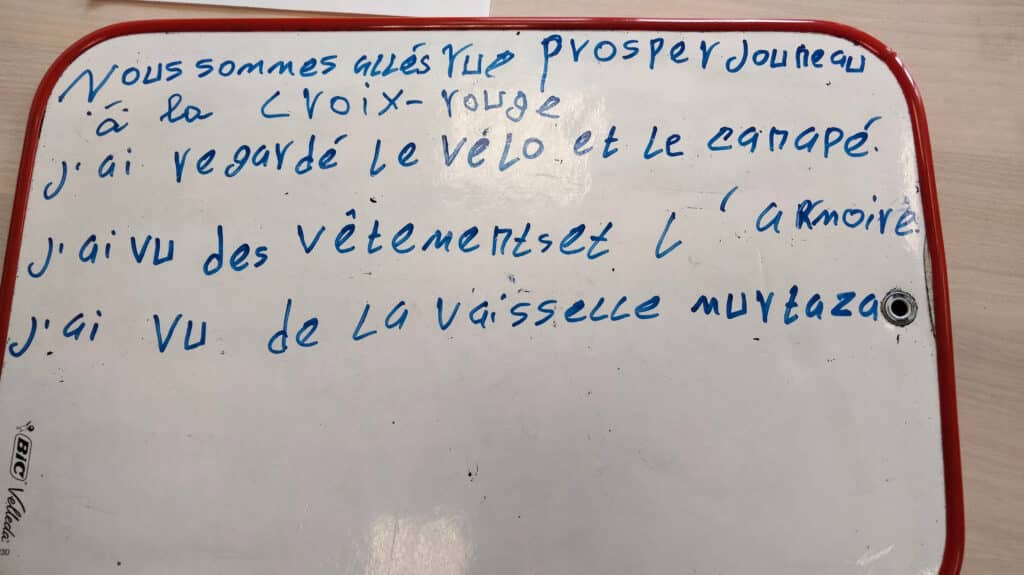 Nous sommes allés rue prosper Jouneau
à la croix-rouge
J'ai regardé le vélo et le canapé.
J'ai vu des vêtementset l'armoire.
J'ai vu de la vaisselle murtaza
BIC Velleda